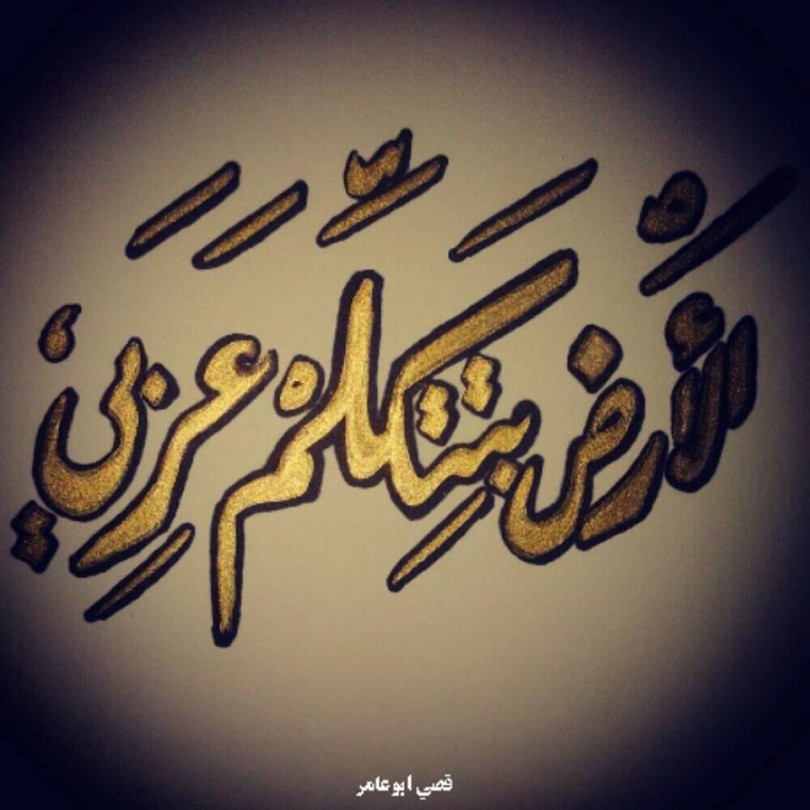 الأرض بتتكلم عربي
قصي ابو عامر